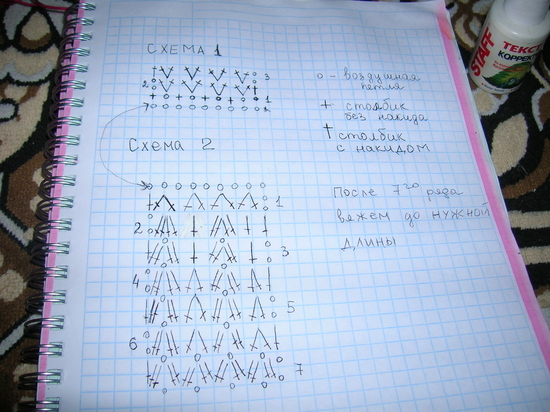 СХЕМА 1
3
2
1
Схема 2
1
2
3
4
5
6
7
о - воздушная
петля
+ столбик
без накида
† столбик
с накидом
После 7го ряда
вяжем до нужной
длины
STAFF
ТЕКСТ
КОРРЕК